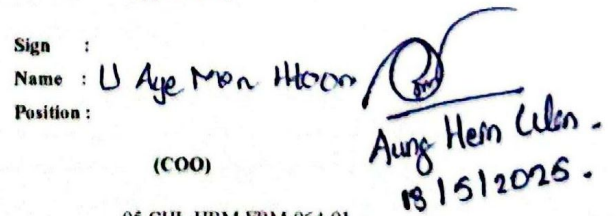 Sign :
Name : U Aye Mon Htoon
Position :
Aung Hein
(COO)
18/5/2025.